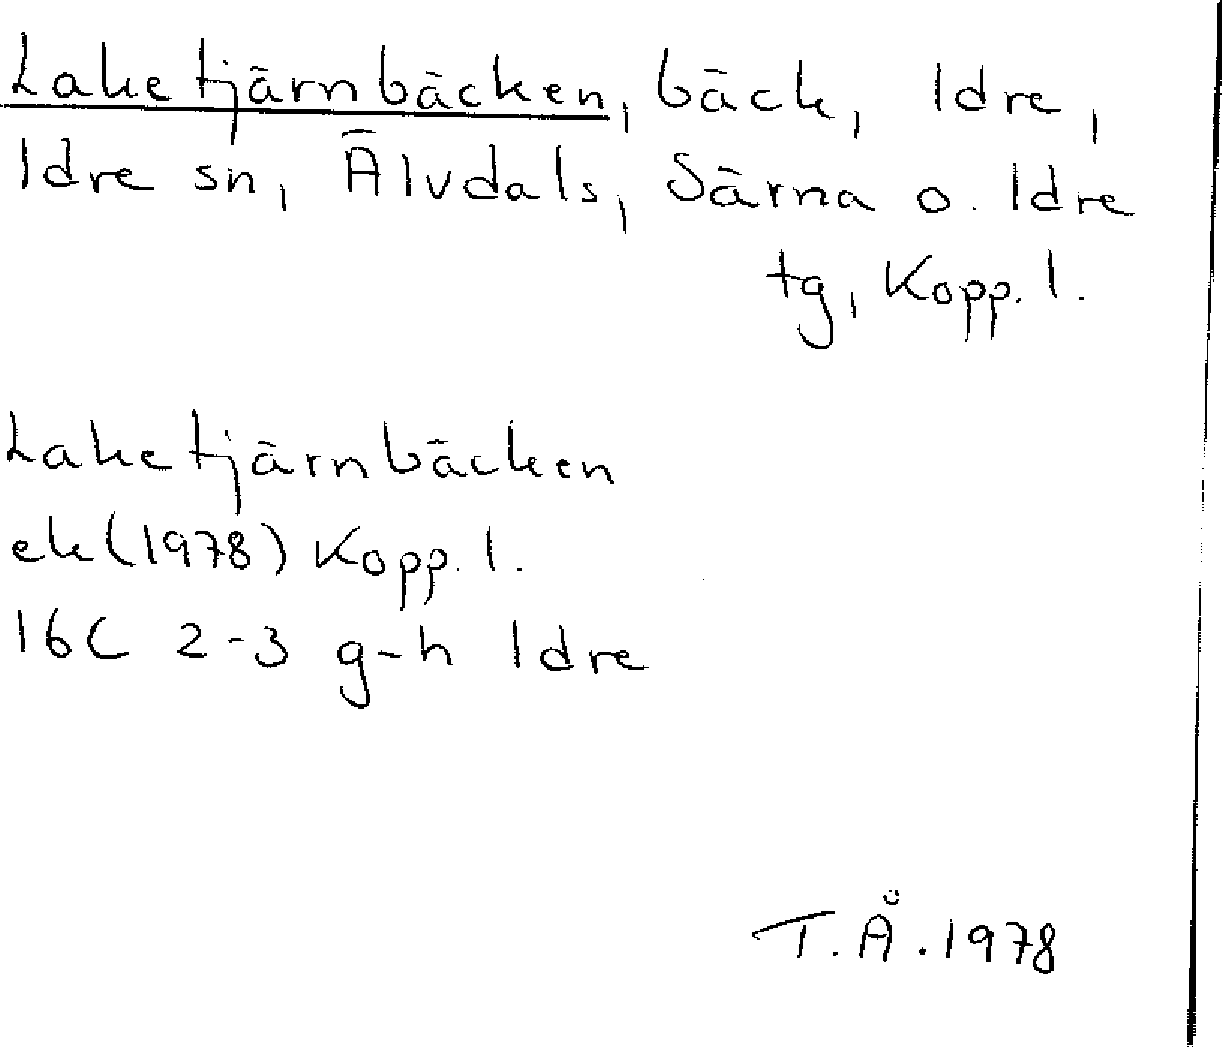 Laketjärnbäcken, bäck, Idre,
Idre sn, Älvdals, Särna o. Idre
tg, Kopp. l.
Laketjärnbäcken
ek (1978) Kopp. l.
16C 2-3 g-h Idre
T. Å. 1978